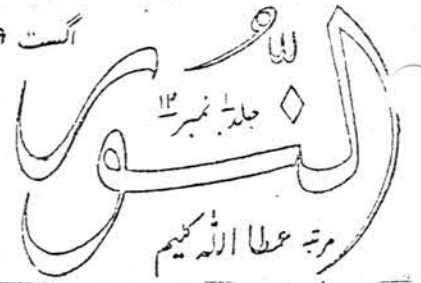 اگست
النور
جلد ۱ نمبر ۱۲
مرتبہ عطا اللہ کلیم